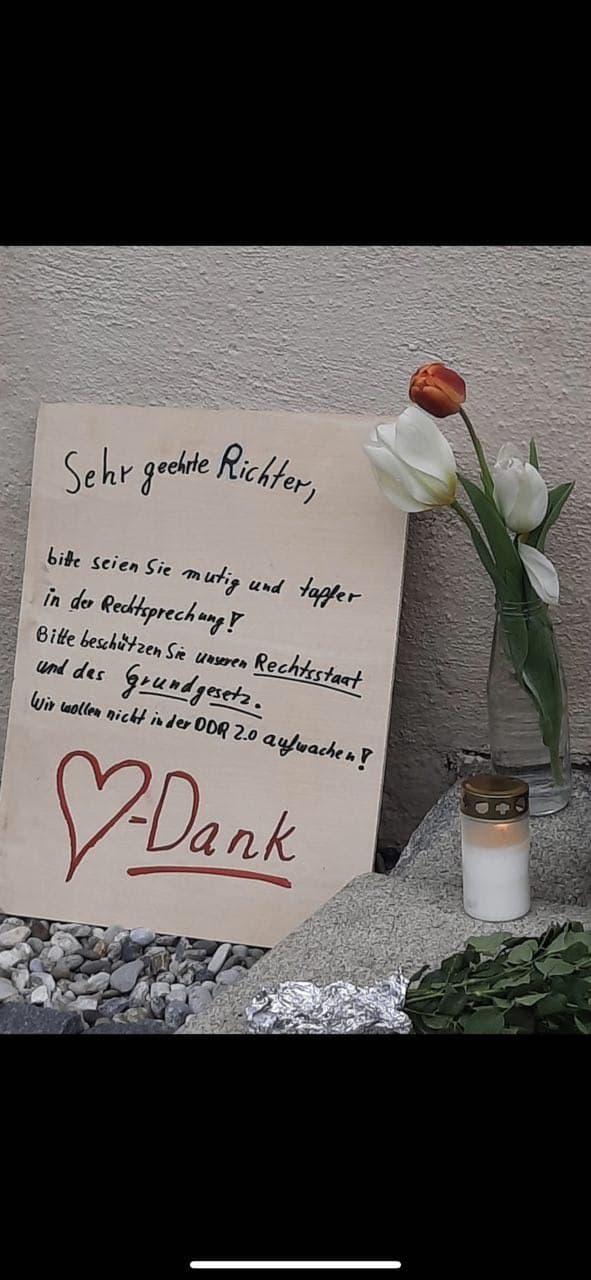 Sehr geehrte Richter,
bitte seien Sie mutig und tapfer
in der Rechtsprechung!
Bitte beschützen Sie unseren Rechtsstaat
und das Grundgesetz.
Wir wollen nicht in der DDR 2.0 aufwachen!
-Dank